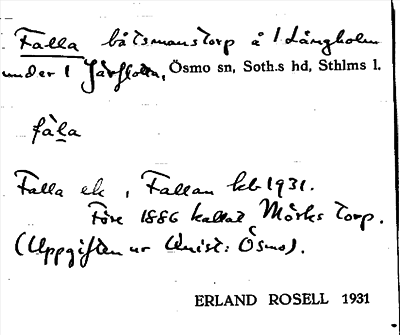 Falla båtsmanstorp å 1 Långholm
under 1 Järflotta, Ösmo sn, Soth.s hd, Sthlms l.
fal̲a
Falla ek, Fallan kb 1931.
Före 1886 kallat Mörks torp.
(Uppgiften ur Unist: Ösmo).
ERLAND ROSELL 1931